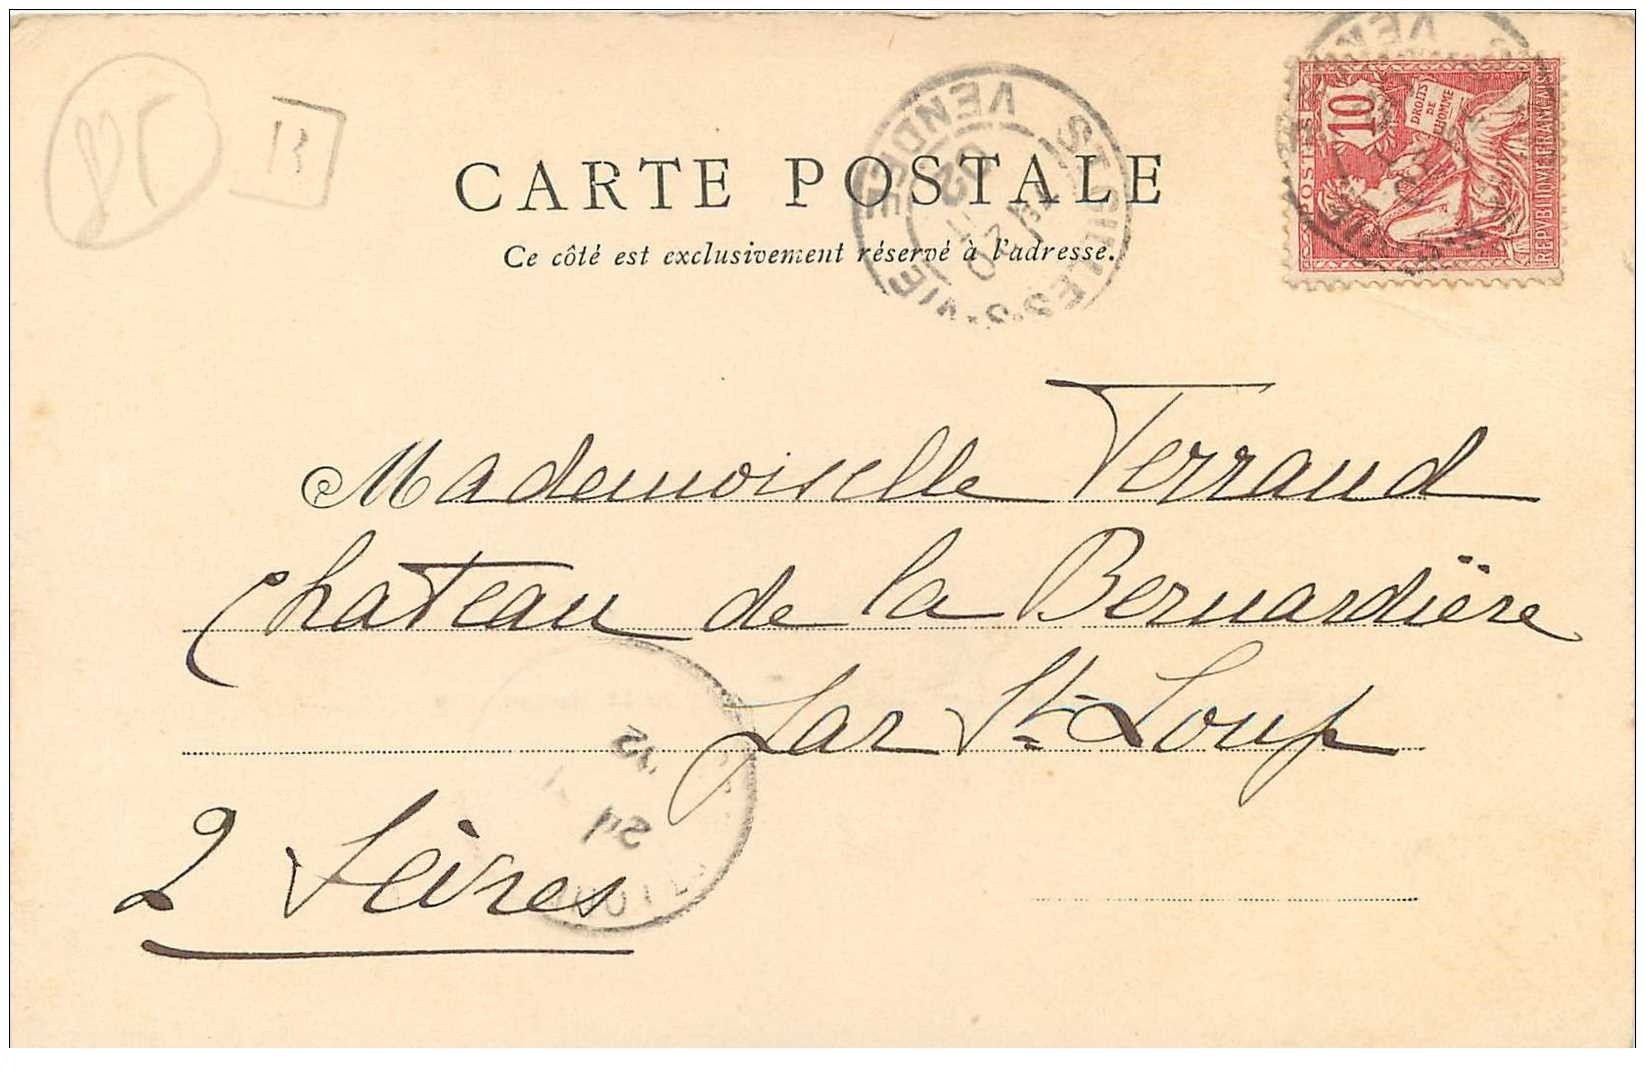 85
B
CARTE POSTALE
Ce côté est exclusivement réservé à l'adresse.
ST GILLES-S-VIE
VENDEE
20
02
POSTES
10
DROITS
DE
L'HOMME
REPVBLIQVE FRANÇAISE
Mademoiselle Ferraud
Chateau de la Bernardière
Par St Loup
2 Sèvres
24